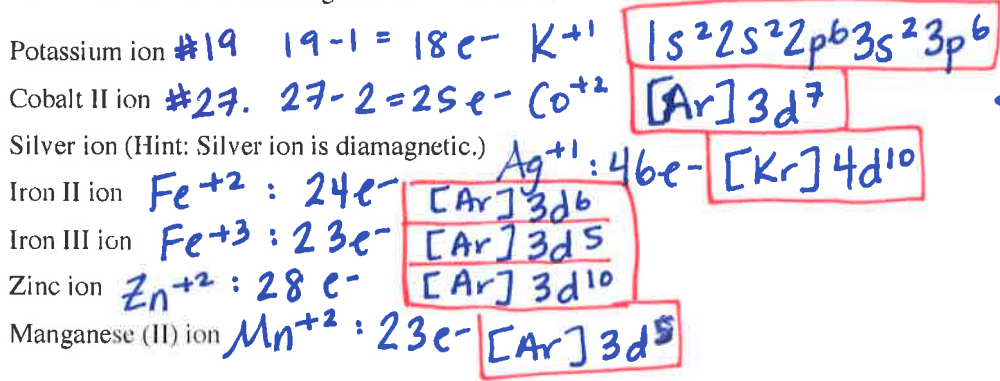 Potassium ion #19 19-1 = 18e- K+1 1s²2s²2p⁶3s²3p⁶
Cobalt II ion #27. 27-2=25e- Co+2 [Ar]3d⁷
Silver ion (Hint: Silver ion is diamagnetic.) Ag+1 : 46e- [Kr]4d¹⁰
Iron II ion Fe+2 : 24e- [Ar]3d6
Iron III ion Fe+3 : 23e- [Ar]3d5
Zinc ion Zn+2 : 28 e- [Ar] 3d10
Manganese (II) ion Mn+2 : 23e- [Ar]3d5